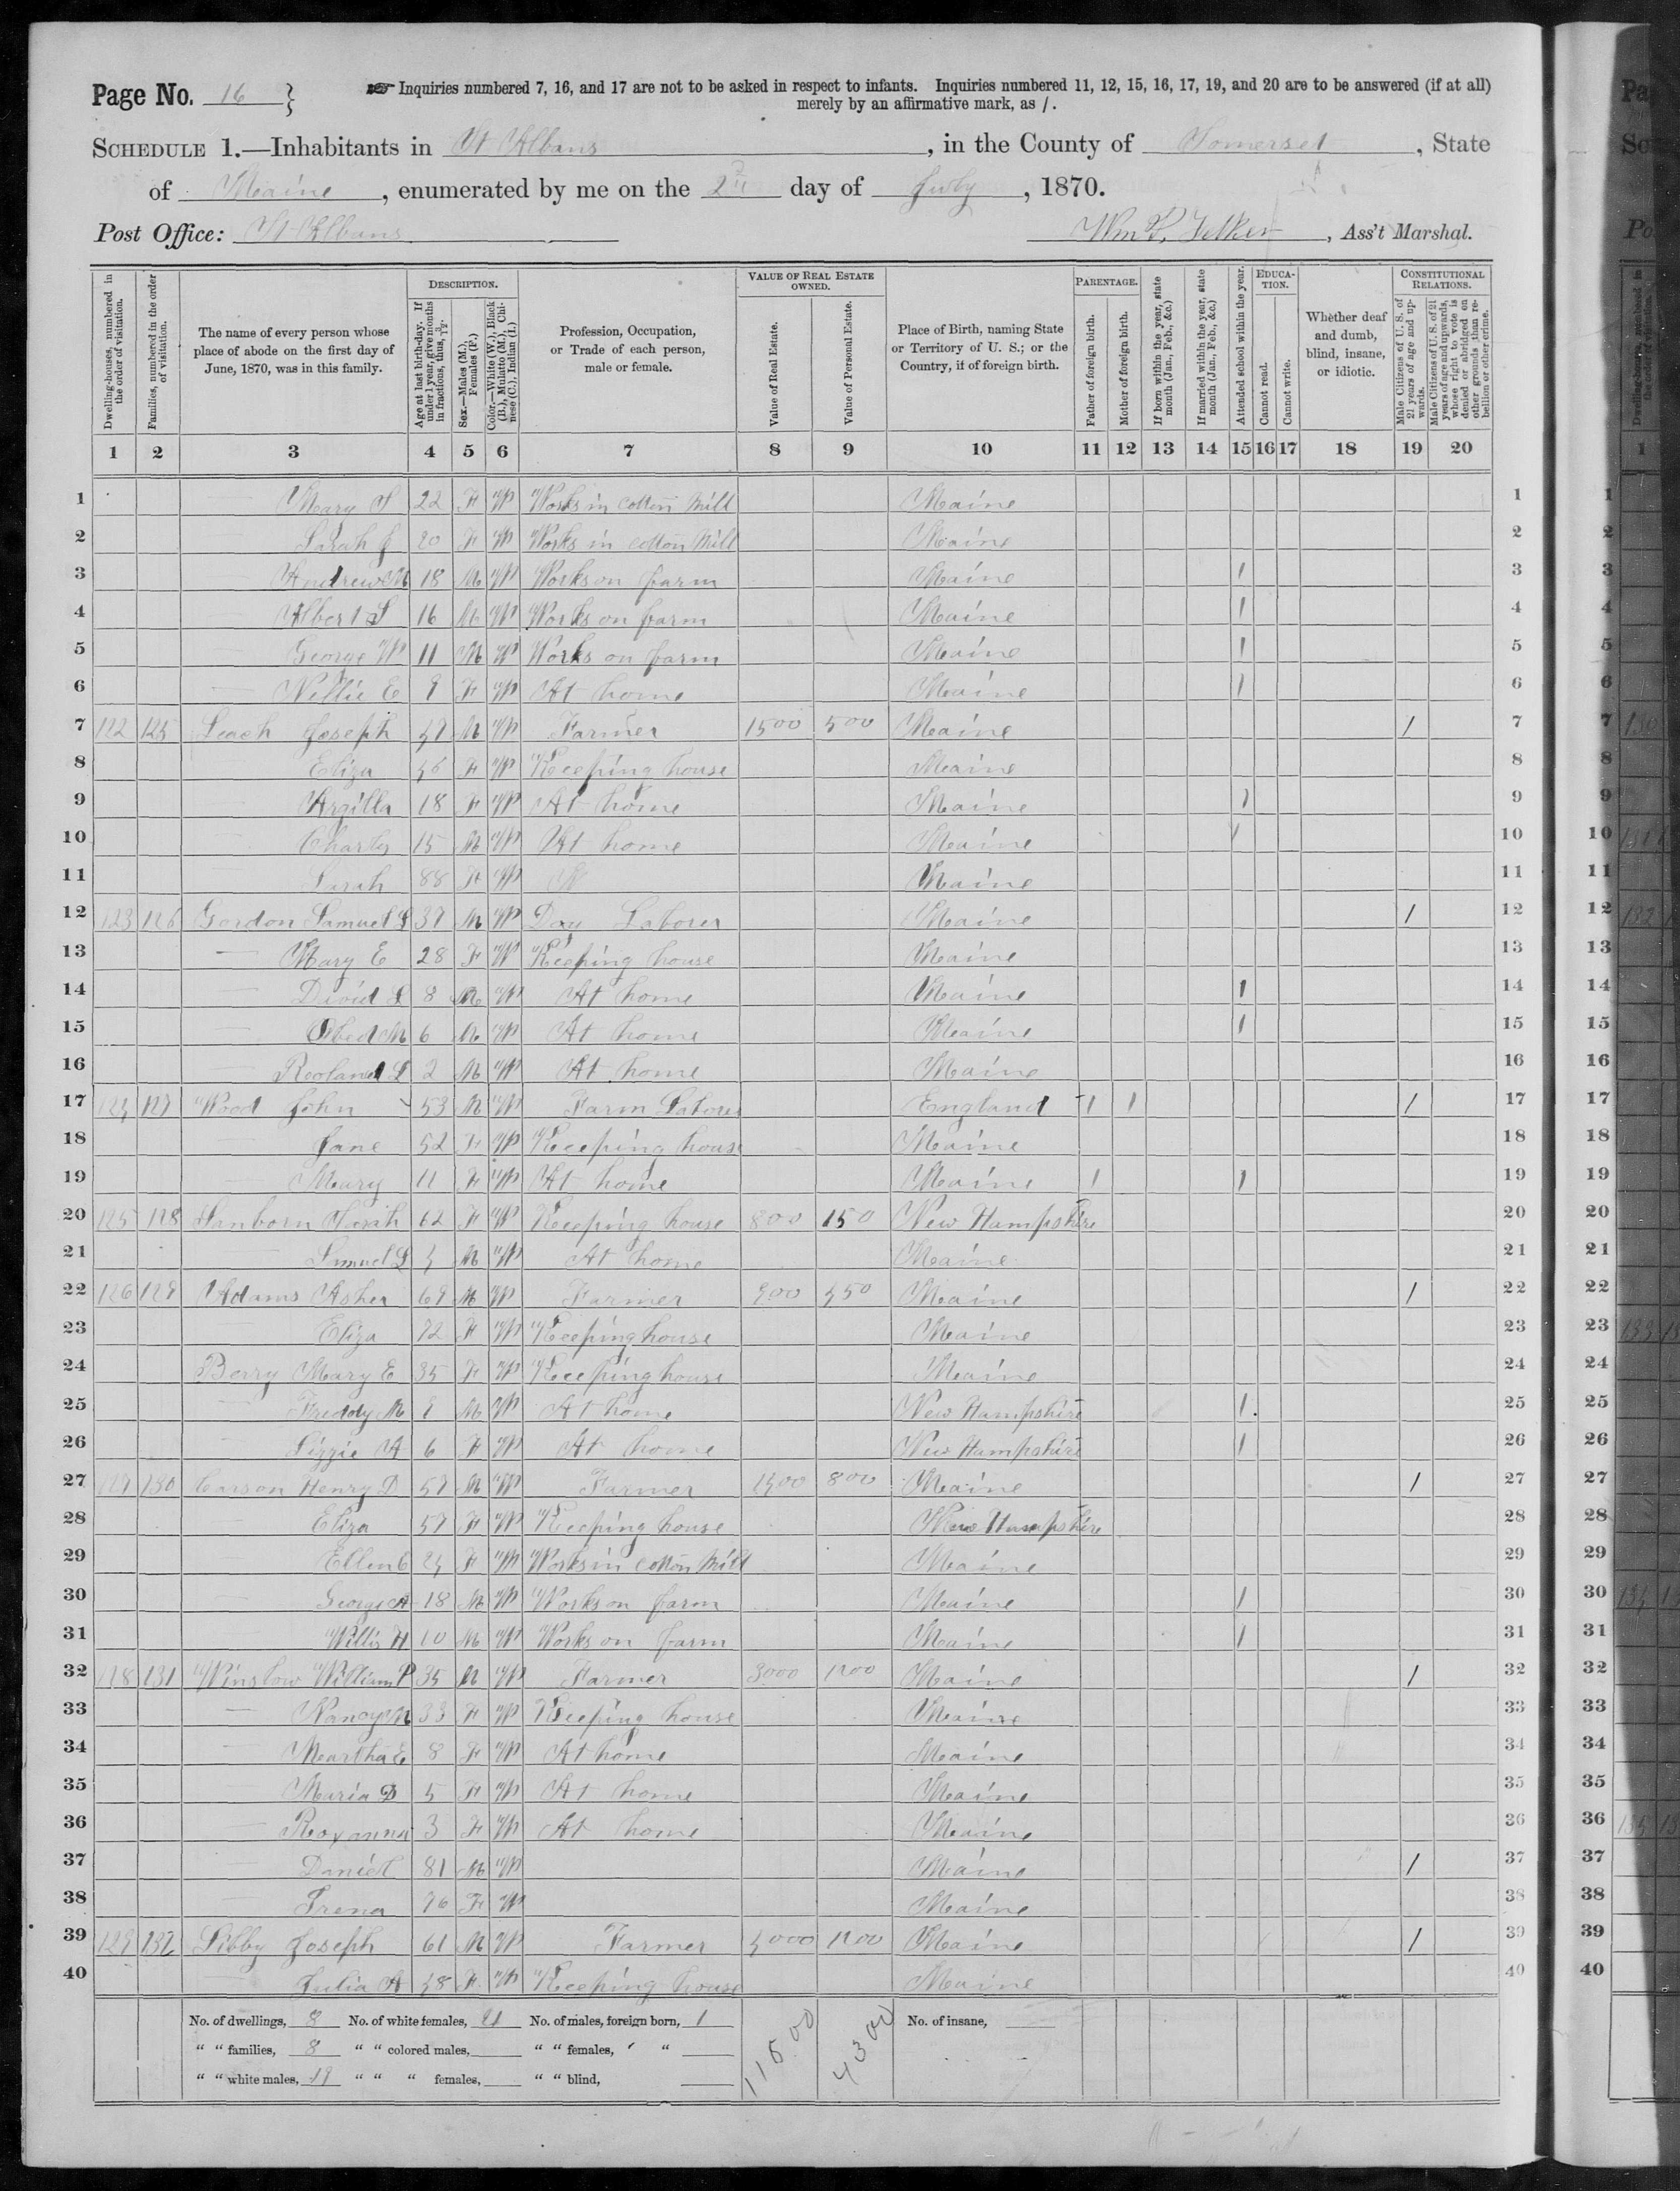 Page No. 16
Inquiries numbered 7, 16, and 17 are not to be asked in respect to infants. Inquiries numbered 11, 12, 15, 16, 17, 19, and 20 are to be answered (if at all)
merely by an affirmative mark, as /.
SCHEDULE 1.—Inhabitants in St Albans, in the County of Somerset, State
of Maine, enumerated by me on the 2nd day of July, 1870.
Post Office: St Albans
Ass't Marshal.
Dwelling-houses, numbered in the order of visitation.
Families, numbered in the order of visitation.
The name of every person whose place of abode on the first day of June, 1870, was in this family.
DESCRIPTION.
Age at last birth-day. If under 1 year, give months in fractions, thus, 3/12.
Sex.—Males (M.), Females (F.)
Color.—White (W.), Black (B.), Mulatto (M.), Chinese (C.), Indian (I.)
Profession, Occupation, or Trade of each person, male or female.
VALUE OF REAL ESTATE OWNED.
Value of Real Estate.
Value of Personal Estate.
Place of Birth, naming State or Territory of U. S.; or the Country, if of foreign birth.
PARENTAGE.
Father of foreign birth.
Mother of foreign birth.
If born within the year, state month (Jan., Feb., &c.)
If married within the year, state month (Jan., Feb., &c.)
Attended school within the year.
EDUCATION.
Cannot read.
Cannot write.
Whether deaf and dumb, blind, insane, or idiotic.
CONSTITUTIONAL RELATIONS.
Male Citizens of U. S. of 21 years of age and upwards.
Male Citizens of U. S. of 21 years of age and upwards, whose right to vote is denied or abridged on other grounds than rebellion or other crime.
1 2 3 4 5 6 7 8 9 10 11 12 13 14 15 16 17 18 19 20
1 Mary 22 F W Works in cotton Mill Maine 1
2 Sarah J 20 F W Works in cotton Mill Maine 2
3 Andrew M 18 M W Works on farm Maine / 3
4 Albert S 16 M W Works on farm Maine / 4
5 George W 11 M W Works on farm Maine / 5
6 Nellie E 9 F W At home Maine / 6
7 122 125 Leach Joseph M W Farmer 1500 500 Maine / 7
8 Eliza F W Keeping house Maine 8
9 Argilla 18 F W At home Maine / 9
10 Charly 15 M W At home Maine / 10
11 Sarah 88 F W Maine 11
12 123 126 Gordon Samuel S 37 M W Day Laborer Maine / 12
13 Mary E 28 F W Keeping house Maine 13
14 David L 8 M W At home Maine / 14
15 Obed M 6 M W At home Maine / 15
16 Rooland L 2 M W At home Maine 16
17 124 127 Wood John 53 M W Farm Laborer England / / / 17
18 Jane 52 F W Keeping house Maine 18
19 Mary 11 F W At home Maine / / 19
20 125 128 Sanborn Sarah 62 F W Keeping house 800 150 New Hampshire 20
21 Samuel L 4 M W At home Maine 21
22 126 129 Adams Asher 69 M W Farmer 900 450 Maine / 22
23 Eliza 72 F W Keeping house Maine 23
24 Berry Mary E 35 F W Keeping house Maine 24
25 Freddy M M W At home New Hampshire / 25
26 Lizzie A 6 F W At home New Hampshire / 26
27 127 130 Carson Henry D 57 M W Farmer 800 Maine / 27
28 Eliza 57 F W Keeping house New Hampshire 28
29 Ellen C 24 F W Works in cotton Mill Maine 29
30 George A 18 M W Works on farm Maine / 30
31 Willis H 10 M W Works on farm Maine / 31
32 128 131 Winslow William P 35 M W Farmer 3000 1200 Maine / 32
33 Nancy M 33 F W Keeping house Maine 33
34 Martha E 8 F W At home Maine 34
35 Maria D 5 F W At home Maine 35
36 Roxanna 3 F W At home Maine 36
37 Daniel 81 M W Maine / 37
38 Irena 76 F W Maine 38
39 129 132 Libby Joseph 61 M W Farmer 4000 1200 Maine / 39
40 Julia A 48 F W Keeping house Maine 40
No. of dwellings, 8 No. of white females, 21 No. of males, foreign born, 1 No. of insane,
" " families, 8 " " colored males, " " females, " "
" " white males, 19 " " " females, " " blind,
4300